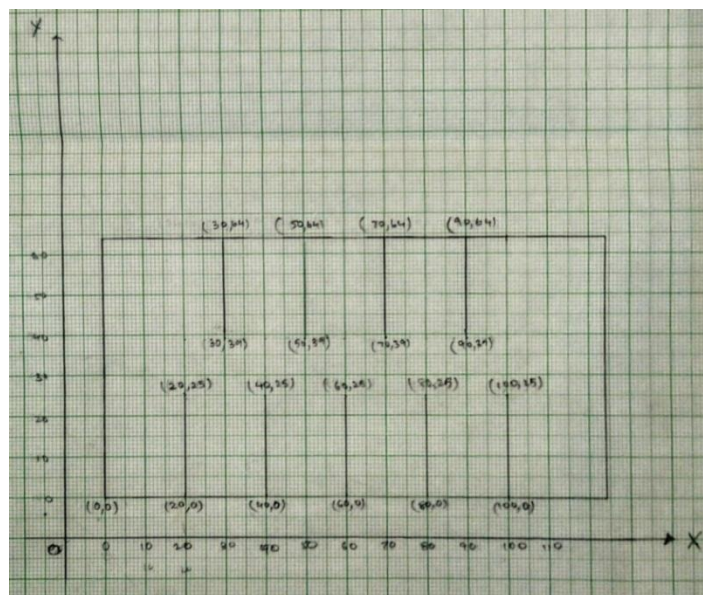 Y
(30,64) (50,64) (70,64) (90,64)
60
50
40 (30,39) (50,39) (70,39) (90,39)
30 (20,25) (40,25) (60,25) (80,25) (100,25)
20
10
0 (0,0) (20,0) (40,0) (60,0) (80,0) (100,0)
0 0 10 20 30 40 50 60 70 80 90 100 110 X